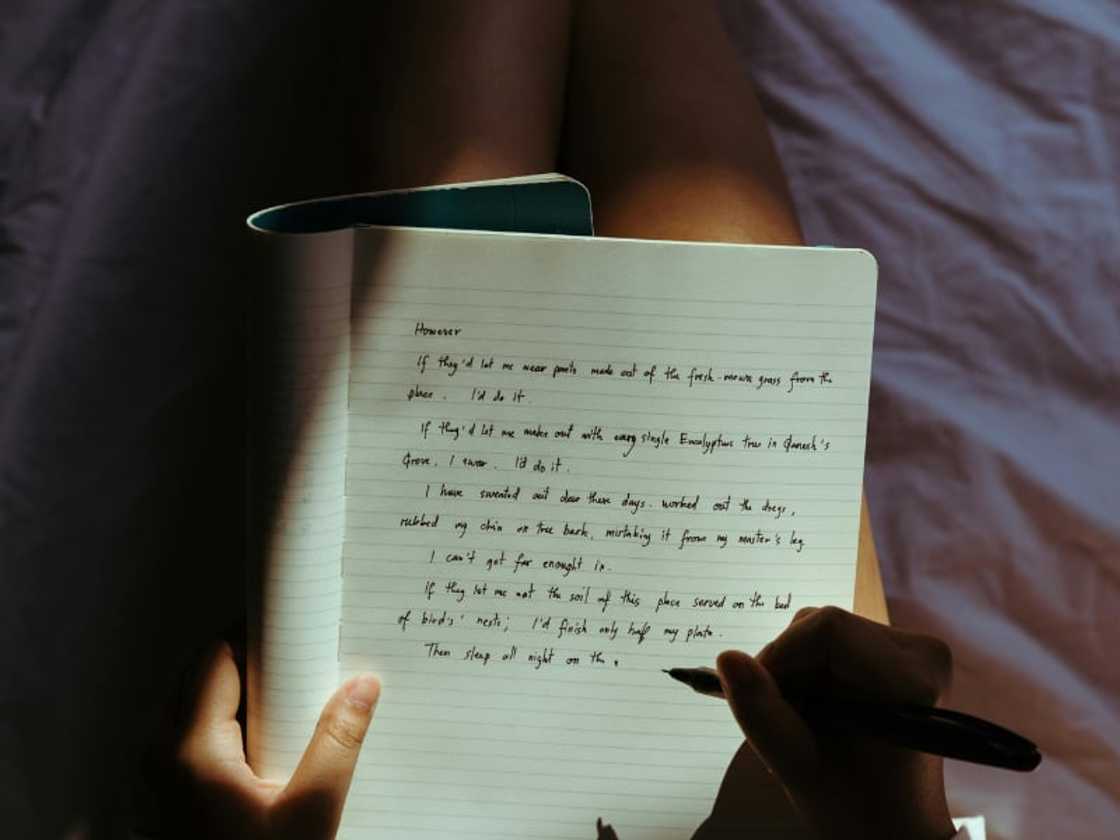 However
If they'd let me wear pants made out of the fresh-mown grass from the
place. I'd do it.
If they'd let me make out with every single Eucalyptus tree in
Grove, I swear. I'd do it.
I have sweated out dew these days. worked out the dregs,
rubbed my chin on tree bark, mistaking it from my master's leg
I can't get far enought in.
If they let me eat the soil of this place served on the bed
of bird's' nests; I'd finish only half my plate.
Then sleep all night on the